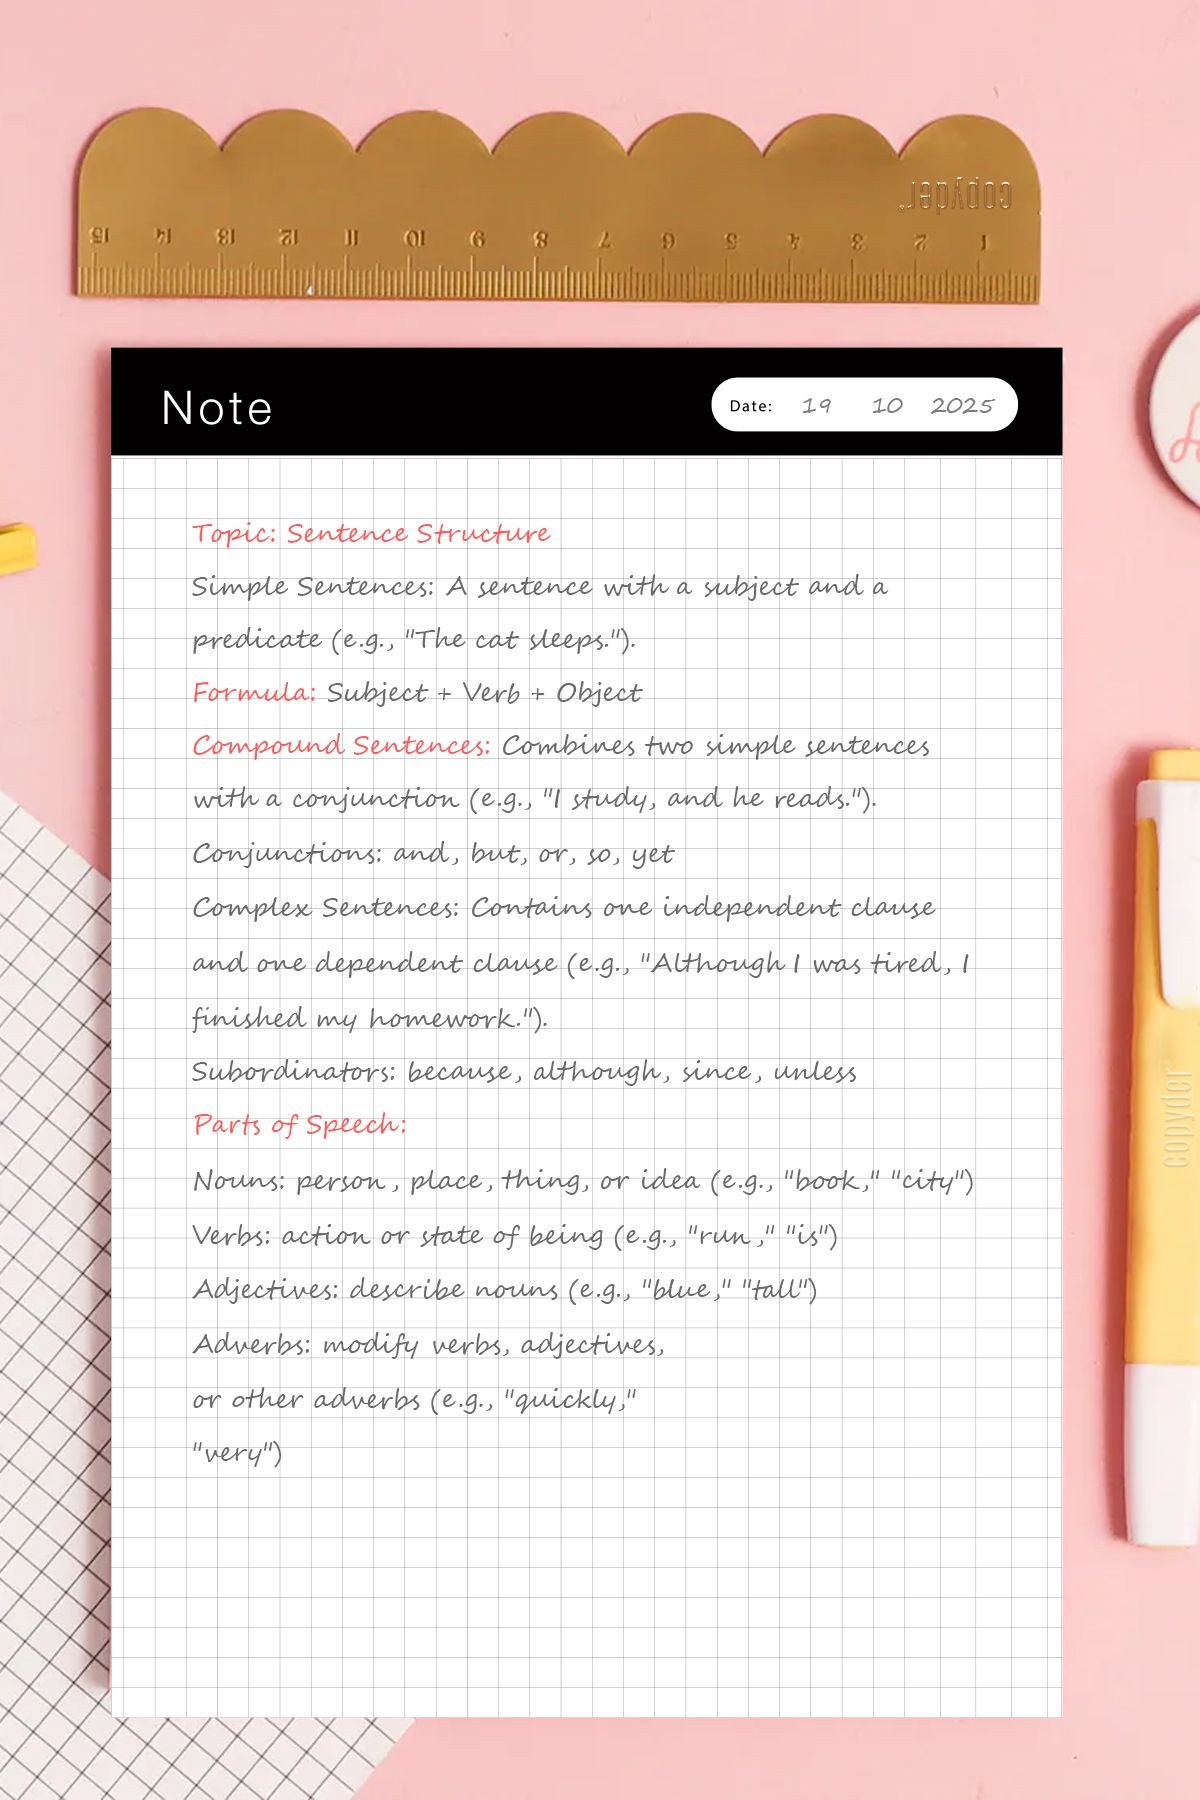 copyder
15 14 13 12 11 10 9 8 7 6 5 4 3 2 1
Note
Date: 19 10 2025
Topic: Sentence Structure
Simple Sentences: A sentence with a subject and a
predicate (e.g., "The cat sleeps.").
Formula: Subject + Verb + Object
Compound Sentences: Combines two simple sentences
with a conjunction (e.g., "I study, and he reads.").
Conjunctions: and, but, or, so, yet
Complex Sentences: Contains one independent clause
and one dependent clause (e.g., "Although I was tired, I
finished my homework.").
Subordinators: because, although, since, unless
Parts of Speech:
Nouns: person, place, thing, or idea (e.g., "book," "city")
Verbs: action or state of being (e.g., "run," "is")
Adjectives: describe nouns (e.g., "blue," "tall")
Adverbs: modify verbs, adjectives,
or other adverbs (e.g., "quickly,"
"very")
copyder